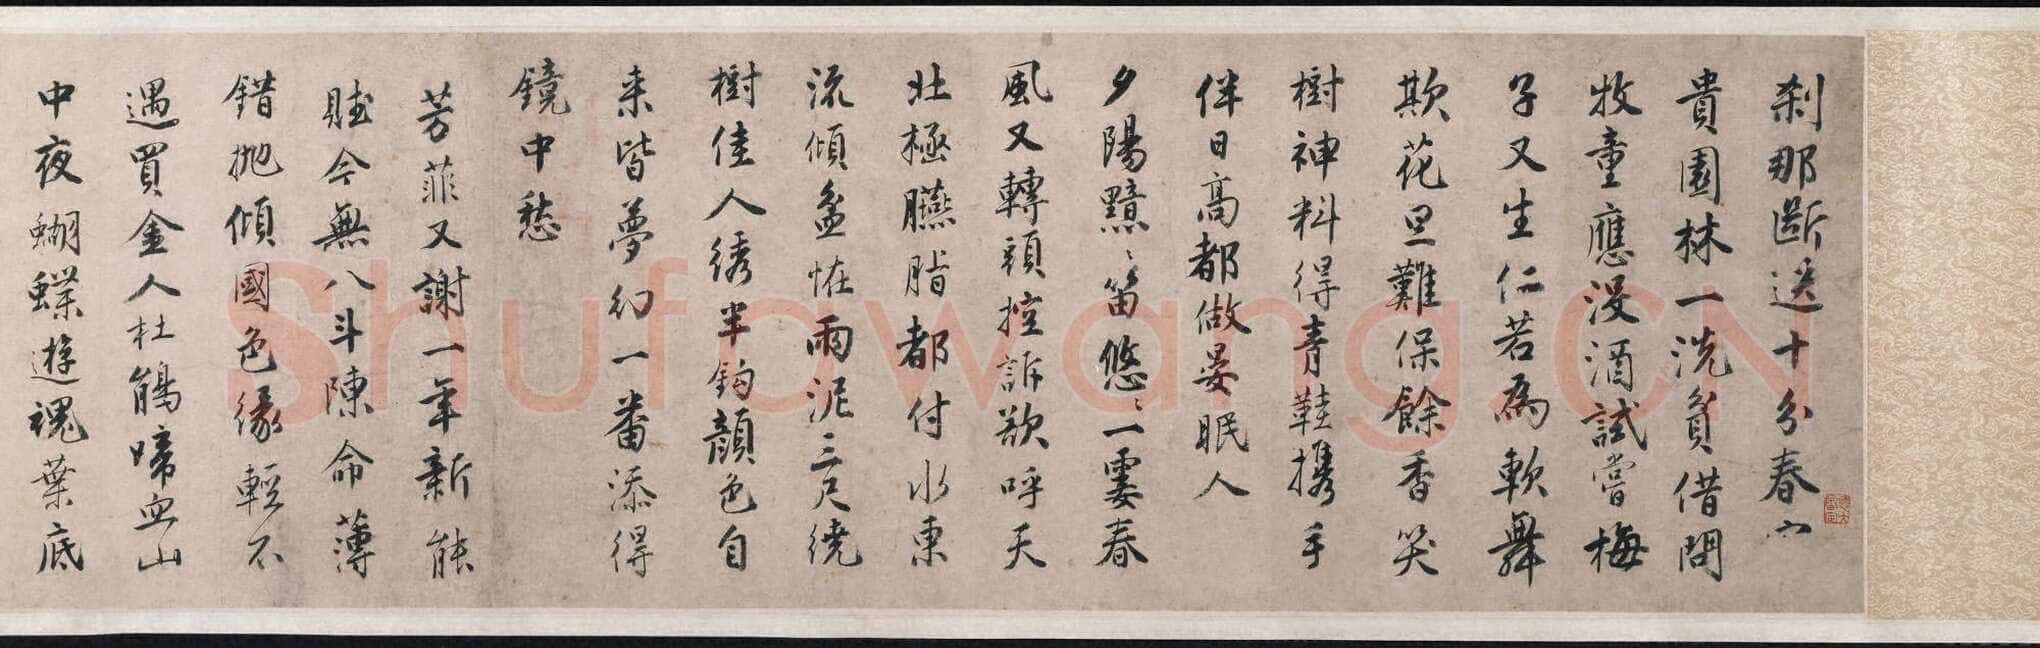 刹那斷送十分春
貴園林一洗貧借問
牧童應没酒試嘗梅
子又生仁若為軟舞
欺花旦難保餘香笑
樹神料得青鞋携手
伴日高都做晏眠人
夕陽黯〻笛悠〻一霎春
風又轉頭控訴欲呼天
北極臙脂都付水東
流傾盆恠雨泥三尺繞
樹佳人綉半鈎顔色自
来皆夢幻一番添得
鏡中愁
芳菲又謝一年新能
賦今無八斗陳命薄
錯抛傾國色緣輕不
遇買金人杜鵑啼血山
中夜蝴蝶遊魂葉底
Shufawang.CN